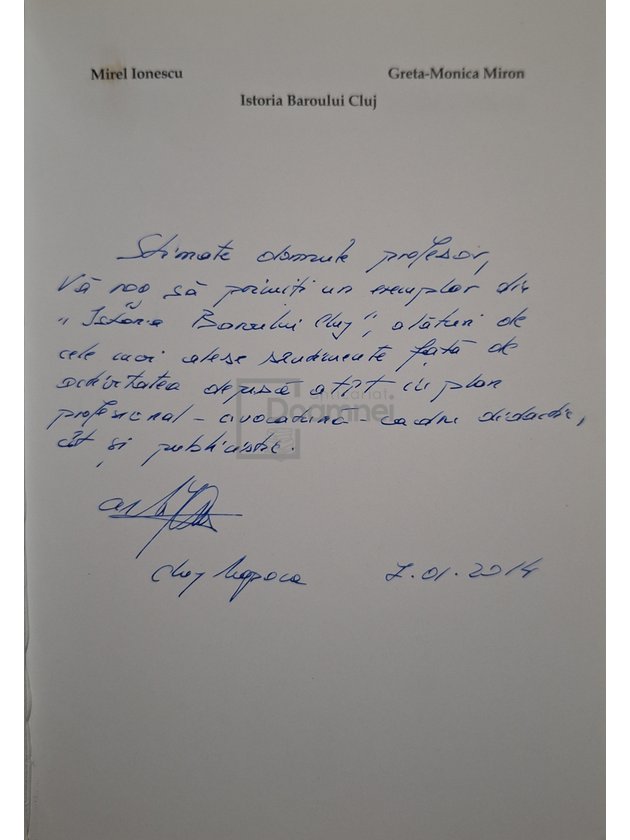 Mirel Ionescu Greta-Monica Miron
Istoria Baroului Cluj
Stimate domnule profesor,
Vă rog să primiți un exemplar din
"Istoria Baroului Cluj", alături de
cele mai alese sentimente față de
activitatea depusă atât în plan
profesional - avocatură - cadru didactic,
cât și publicistic.
Cluj Napoca 7.01.2014
anticariat
Doamnei